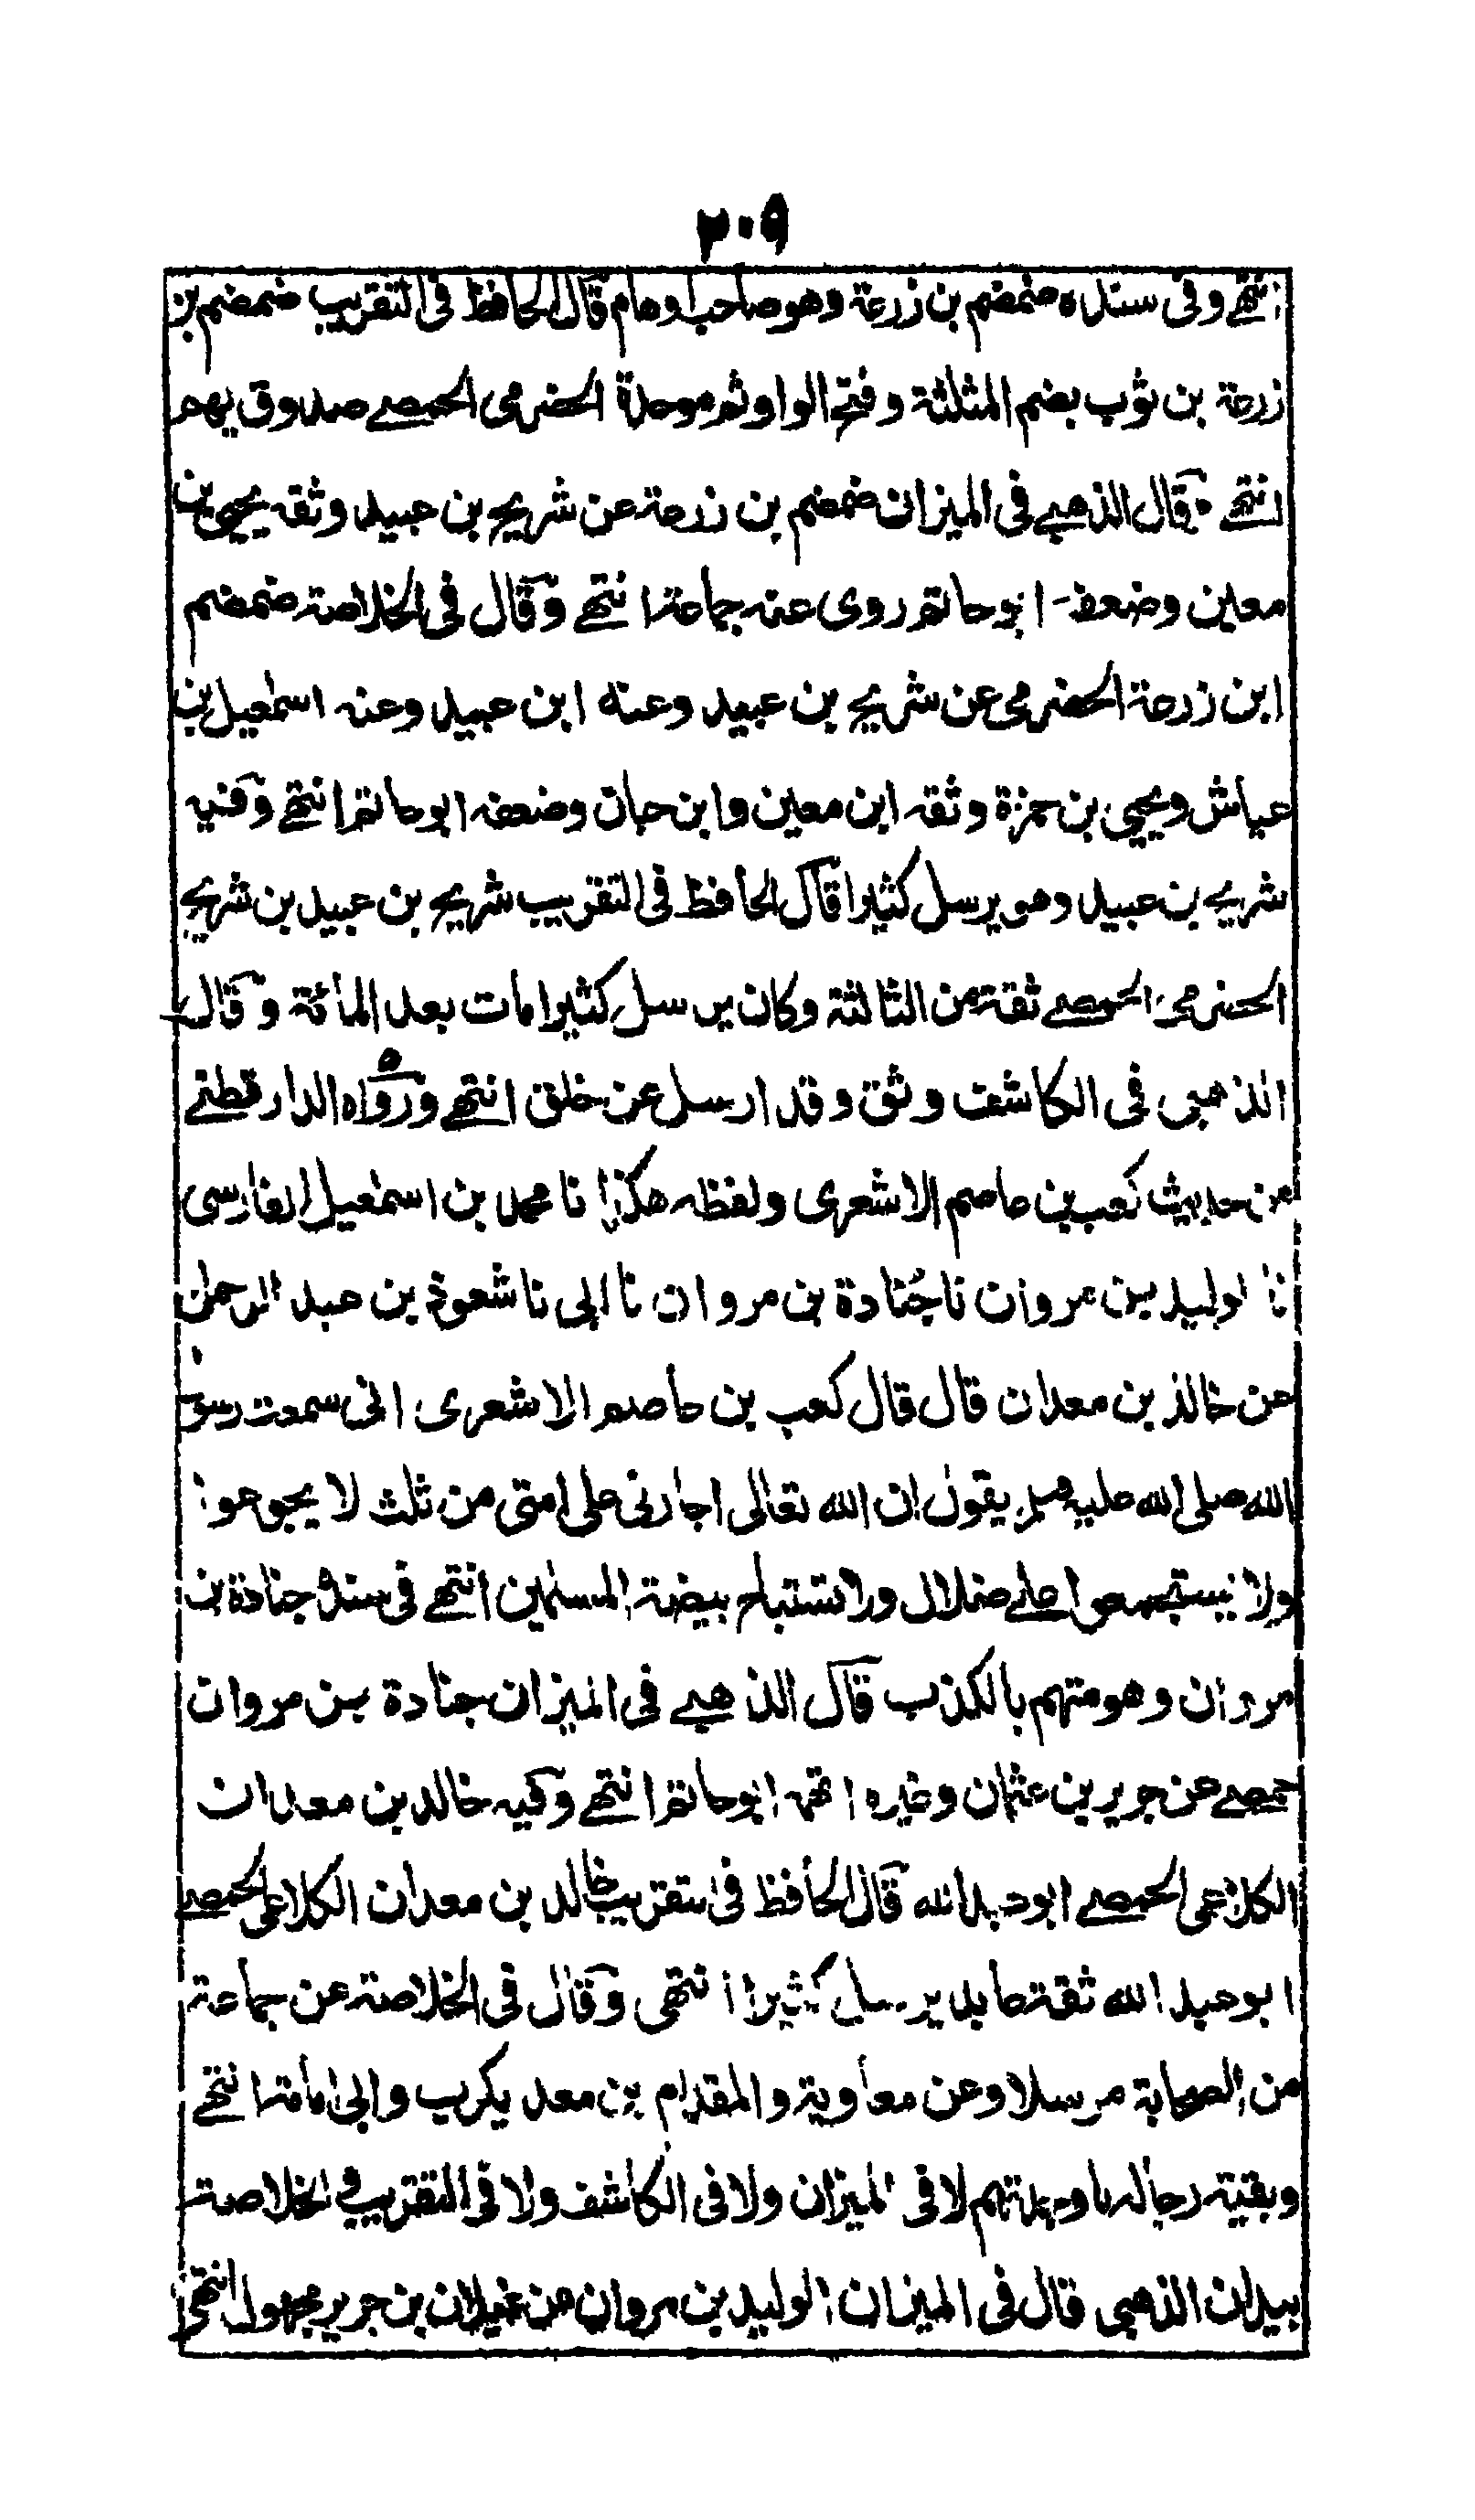 ٢٠٩
انتهى وفى سنده ضمضم بن زرعة وهو صاحب اوهام قال الحافظ فى التقريب ضمضم بن
زرعة بن ثوب بضم المثلثة وفتح الواو ثم موحدة الحضرمى الحمصے صدوق يهم
انتهے وقال الذهبے فى الميزان ضمضم بن زرعة عن شريح بن عبيد وثقه يحيى بن
معين وضعفه ابو حاتم روى عنه جماعة انتهے وقال فى الخلاصة ضمضم
ابن زرعة الحضرمى عن شريح بن عبيد وعنه ابن عبيد وعنه اسمعيل بن
عياش ويحيى بن حمزة وثقه ابن معين وابن حبان وضعفه ابو حاتم انتهے وفيه
شريح بن عبيد وهو يرسل كثيرا قال الحافظ فى التقريب شريح بن عبيد بن شريح
الحضرمى الحمصے ثقة من الثالثة وكان يرسل كثيرا مات بعد المائة وقال
الذهبى فى الكاشف وثق وقد ارسل عن خلق انتهے ورواه الدارقطنے
من حديث كعب بن عاصم الاشعرى ولفظه هكذا نا محمد بن اسمعيل الفارسى
نا الوليد بن مروان نا جُنادة بن مروان نا ابى نا شعوذ بن عبد الرحمن
عن خالد بن معدان قال قال كعب بن عاصم الاشعرى انى سمعت رسول
الله صلى الله عليه وسلم يقول ان الله تعالى اجارنى على امتى من ثلث لا يجوعوا
ولا يستجمعوا على ضلال ولا تستباح بيضة المسلمين انتهے فى سنده جنادة بن
مروان وهو متهم بالكذب قال الذهبے فى الميزان جنادة بن مروان
حمصے عن حريز بن عثمان وغيره اتهمه ابو حاتم انتهے وفيه خالد بن معدان
الكلاعى الحمصے ابو عبد الله قال الحافظ فى التقريب خالد بن معدان الكلاعى الحمصے
ابو عبد الله ثقة عابد يرسل كثيرا انتهى وقال فى الخلاصة عن جماعة
من الصحابة مرسلا وعن معاوية والمقدام بن معد يكرب وابى امامة انتهے
وبقية رجاله ما وجدتهم لا فى الميزان ولا فى الكاشف ولا فى التقريب فى الخلاصة
بيد ان الذهبى قال فى الميزان الوليد بن مروان عن غيلان بن جرير مجهول انتهى